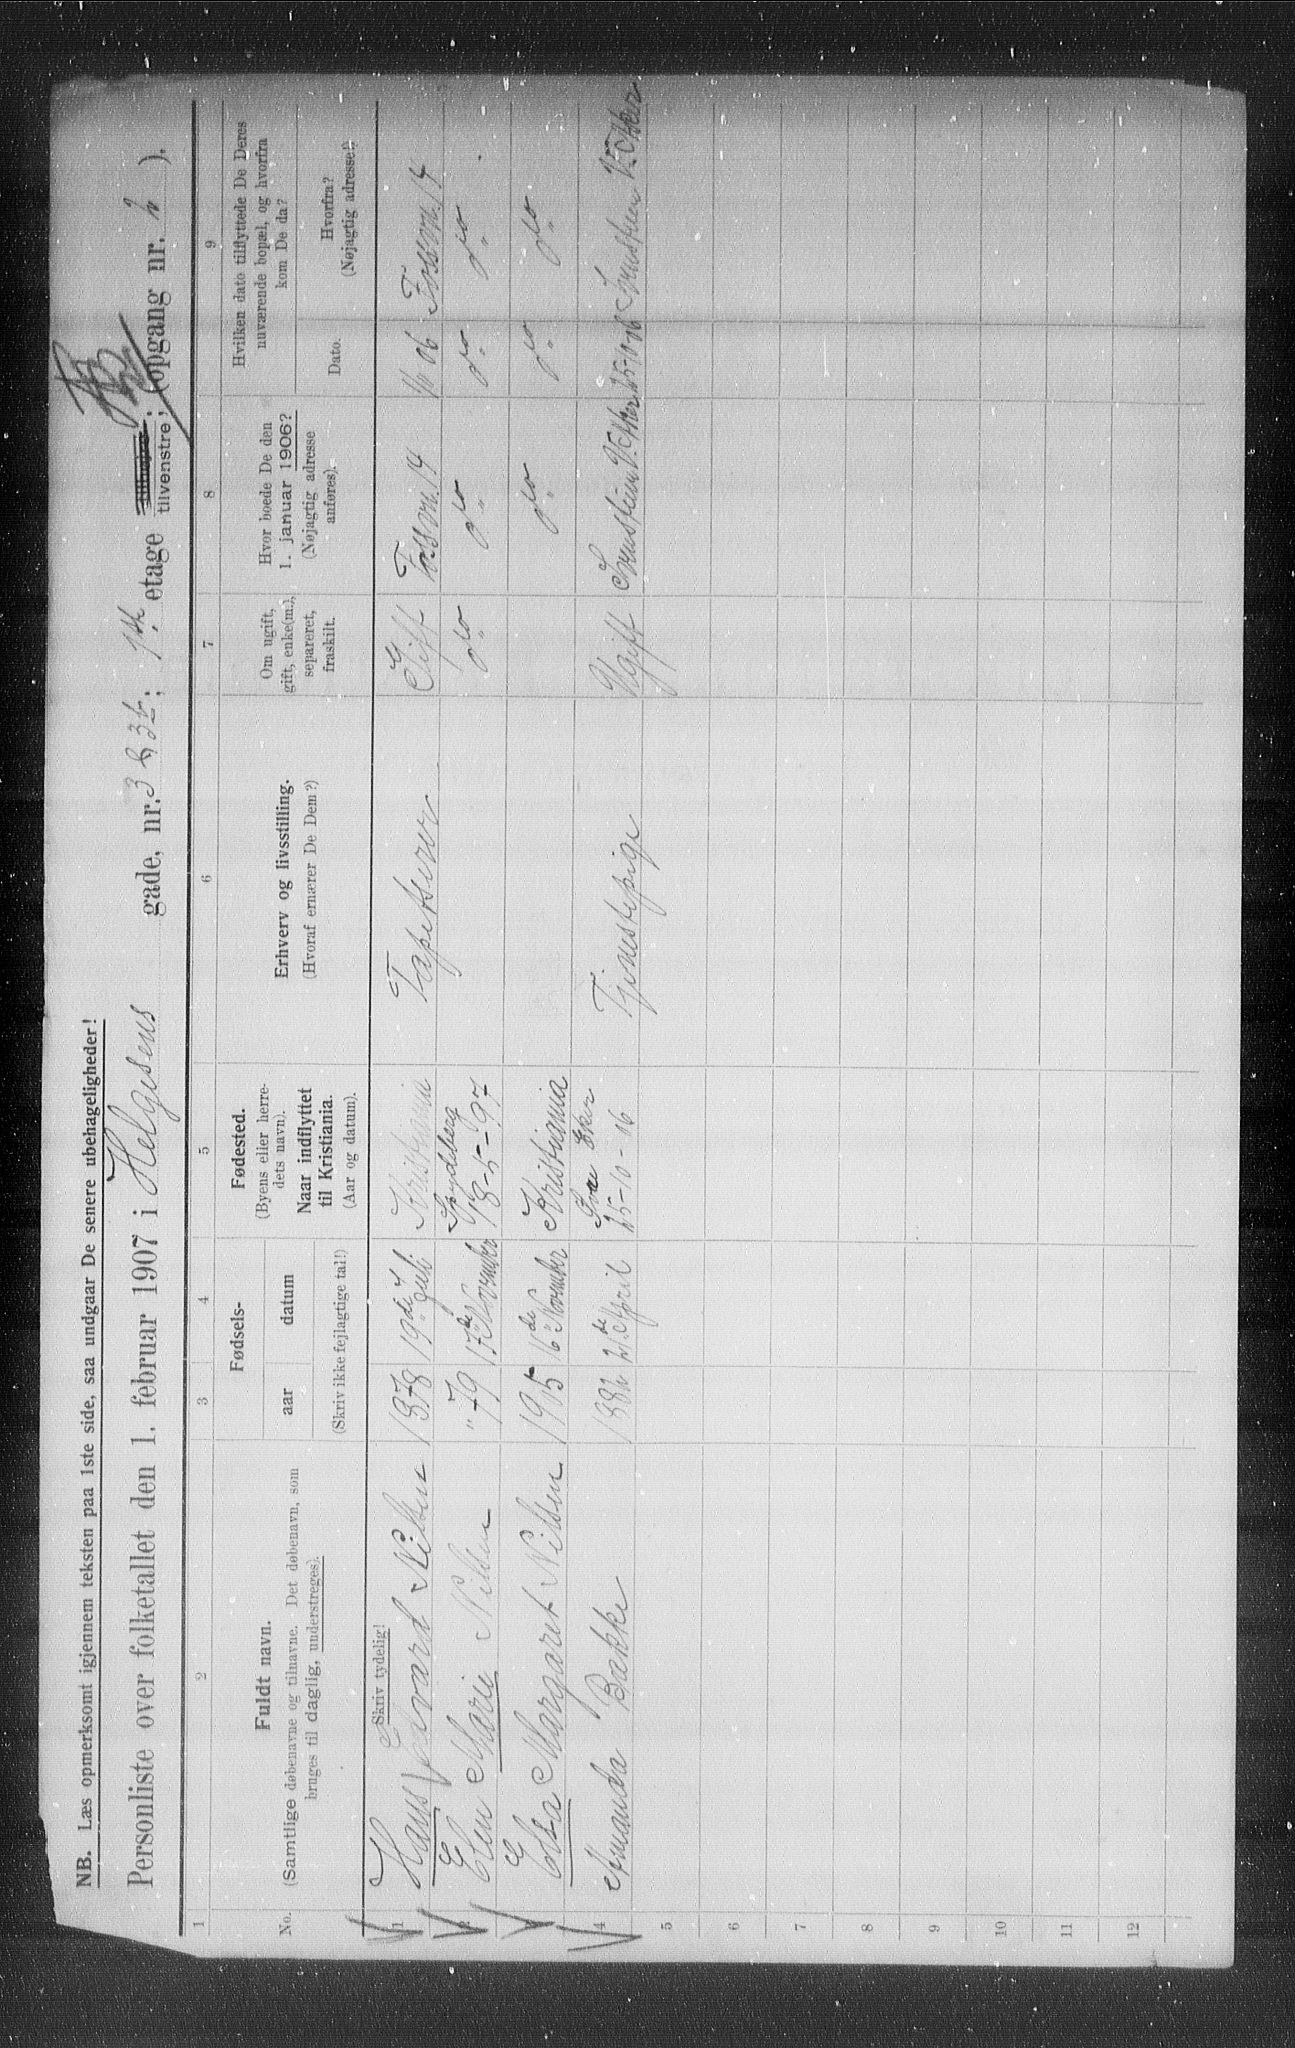 NB. Læs opmerksomt igjennem teksten paa 1ste side, saa undgaar De senere ubehageligheder!
Personliste over folketallet den 1. februar 1907 i Helgesens gade, nr. 3 ; 1ste etage tilhøjre; tilvenstre; (opgang nr. ).
1 2 3 4 5 6 7 8 9
No.
Fuldt navn.
(Samtlige døbenavne og tilnavne. Det døbenavn, som
bruges til daglig, understreges).
Fødsels-
aar datum
(Skriv ikke fejlagtige tal!)
Fødested.
(Byens eller herre-
dets navn).
Naar indflyttet
til Kristiania.
(Aar og datum).
Erhverv og livsstilling.
(Hvoraf ernærer De Dem?)
Om ugift,
gift, enke(m.),
separeret,
fraskilt.
Hvor boede De den
1. januar 1906?
(Nøjagtig adresse
anføres).
Hvilken dato tilflyttede De Deres
nuværende bopæl, og hvorfra
kom De da?
Dato.
Hvorfra?
(Nøjagtig adresse!)
Skriv tydelig!
1 Hans Edvard Nilsen 1878 19de Juli Kristiania Tapetserer Gift Fossvn. 14 06 Fossvn. 14
2 Elen Marie Nilsen " 79 17de November Spydeberg 18-5-97 do do do do
3 Elsa Margaret Nilsen 1905 16de November Kristiania do do do
4 Amanda Bække 1882 21de April Eker 25-10-06 Tjenestepige Ugift V. Eker 25-10-06 V. Eker
5
6
7
8
9
10
11
12